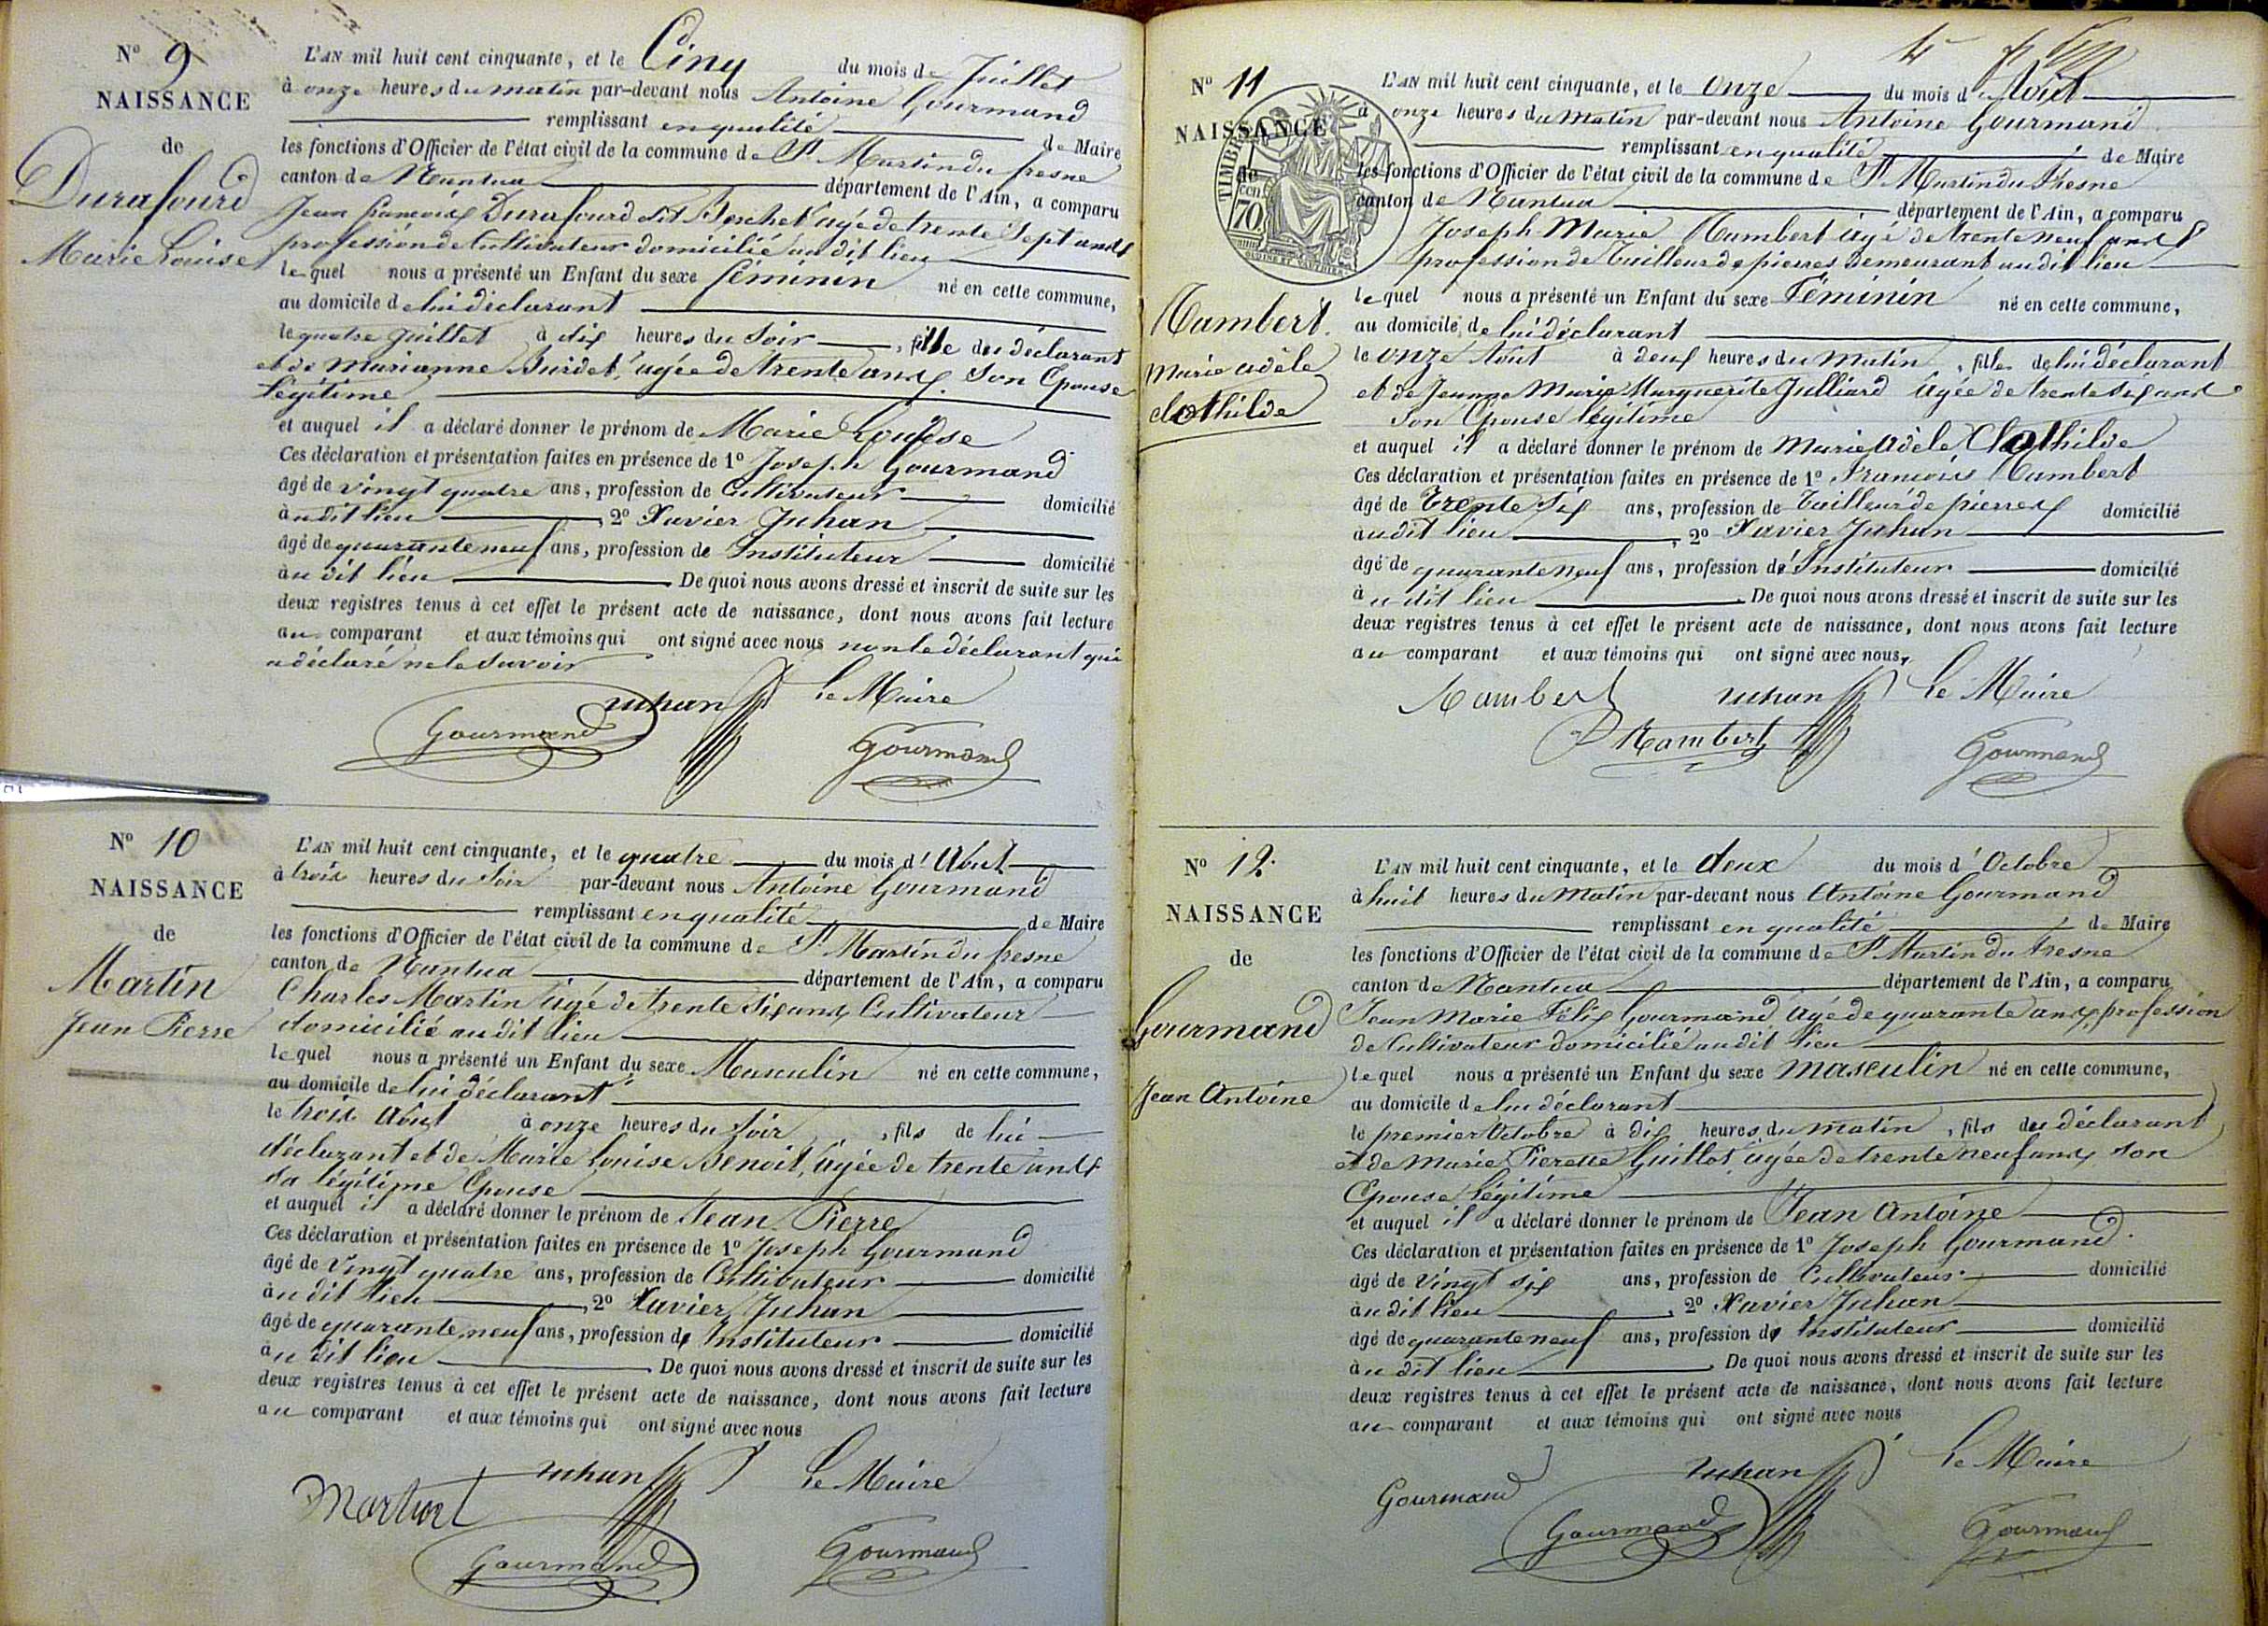 N° 9
NAISSANCE
de
Durafourd
Marie Louise
L'AN mil huit cent cinquante, et le Cinq du mois de Juillet
à onze heures du matin par-devant nous Antoine Gourmand
remplissant en qualité de Maire
les fonctions d'Officier de l'état civil de la commune de St Martin du fresne
canton de Nantua département de l'Ain, a comparu
Jean françois Durafourd dit âgé de trente Sept ans
profession de Cultivateur domicilié au dit lieu
lequel nous a présenté un Enfant du sexe féminin né en cette commune,
au domicile de lui déclarant
le quatre Juillet à dix heures du Soir, fille du déclarant
et de Marianne Burdet, âgée de trente ans, Son Epouse
légitime
et auquel il a déclaré donner le prénom de Marie Louise
Ces déclaration et présentation faites en présence de 1° Joseph Gourmand
âgé de vingt quatre ans, profession de Cultivateur domicilié
au dit lieu, 2° Xavier Juhan
âgé de quarante neuf ans, profession de Instituteur domicilié
au dit lieu De quoi nous avons dressé et inscrit de suite sur les
deux registres tenus à cet effet le présent acte de naissance, dont nous avons fait lecture
au comparant et aux témoins qui ont signé avec nous non le déclarant qui
a déclaré ne le Savoir
Juhan Le Maire
Gourmand Gourmand
N° 10
NAISSANCE
de
Martin
Jean Pierre
L'AN mil huit cent cinquante, et le quatre du mois d'Aout
à trois heures du Soir par-devant nous Antoine Gourmand
remplissant en qualité de Maire
les fonctions d'Officier de l'état civil de la commune de St Martin du fresne
canton de Nantua département de l'Ain, a comparu
Charles Martin âgé de trente Six ans, Cultivateur
domicilié au dit lieu
lequel nous a présenté un Enfant du sexe Masculin né en cette commune,
au domicile de lui déclarant
le trois Aout à onze heures du Soir, fils de lui
déclarant et de Marie Louise Benoit, âgée de trente ans
sa légitime Epouse
et auquel il a déclaré donner le prénom de Jean Pierre
Ces déclaration et présentation faites en présence de 1° Joseph Gourmand
âgé de Vingt quatre ans, profession de Cultivateur domicilié
au dit lieu, 2° Xavier Juhan
âgé de quarante neuf ans, profession de Instituteur domicilié
au dit lieu De quoi nous avons dressé et inscrit de suite sur les
deux registres tenus à cet effet le présent acte de naissance, dont nous avons fait lecture
au comparant et aux témoins qui ont signé avec nous
Juhan Le Maire
Martin
Gourmand Gourmand
N° 11
NAISSANCE
de
TIMBRE
70
cen
OUDINE ET VAUTHIER
Humbert
Marie adèle
clothilde
L'AN mil huit cent cinquante, et le Onze du mois d'Aout
à onze heures du Matin par-devant nous Antoine Gourmand
remplissant en qualité de Maire
les fonctions d'Officier de l'état civil de la commune de St Martin du Fresne
canton de Nantua département de l'Ain, a comparu
Joseph Marie Humbert âgé de trente neuf ans
profession de Tailleur de pierres demeurant au dit lieu
lequel nous a présenté un Enfant du sexe Féminin né en cette commune,
au domicile de lui déclarant
le onze Aout à deux heures du Matin, fille de lui déclarant
et de Jeanne Marie Marguerite Julliard âgée de trente six ans
Son Epouse légitime
et auquel il a déclaré donner le prénom de Marie Adèle Clothilde
Ces déclaration et présentation faites en présence de 1° François Humbert
âgé de Trente Six ans, profession de Tailleur de pierres domicilié
au dit lieu, 2° Xavier Juhan
âgé de quarante neuf ans, profession de Instituteur domicilié
au dit lieu De quoi nous avons dressé et inscrit de suite sur les
deux registres tenus à cet effet le présent acte de naissance, dont nous avons fait lecture
au comparant et aux témoins qui ont signé avec nous,
Humbert Juhan Le Maire
Humbert Gourmand
N° 12
NAISSANCE
de
Gourmand
Jean Antoine
L'AN mil huit cent cinquante, et le deux du mois d'Octobre
à huit heures du Matin par-devant nous Antoine Gourmand
remplissant en qualité de Maire
les fonctions d'Officier de l'état civil de la commune de St Martin du fresne
canton de Nantua département de l'Ain, a comparu
Jean Marie Félix Gourmand âgé de quarante ans, profession
de Cultivateur domicilié au dit lieu
lequel nous a présenté un Enfant du sexe masculin né en cette commune,
au domicile de lui déclarant
le premier Octobre à dix heures du matin, fils du déclarant
et de Marie Pierette Guillot âgée de trente neuf ans, son
Epouse légitime
et auquel il a déclaré donner le prénom de Jean Antoine
Ces déclaration et présentation faites en présence de 1° Joseph Gourmand
âgé de Vingt six ans, profession de Cultivateur domicilié
au dit lieu, 2° Xavier Juhan
âgé de quarante neuf ans, profession de Instituteur domicilié
au dit lieu De quoi nous avons dressé et inscrit de suite sur les
deux registres tenus à cet effet le présent acte de naissance, dont nous avons fait lecture
au comparant et aux témoins qui ont signé avec nous
Gourmand Juhan Le Maire
Gourmand Gourmand